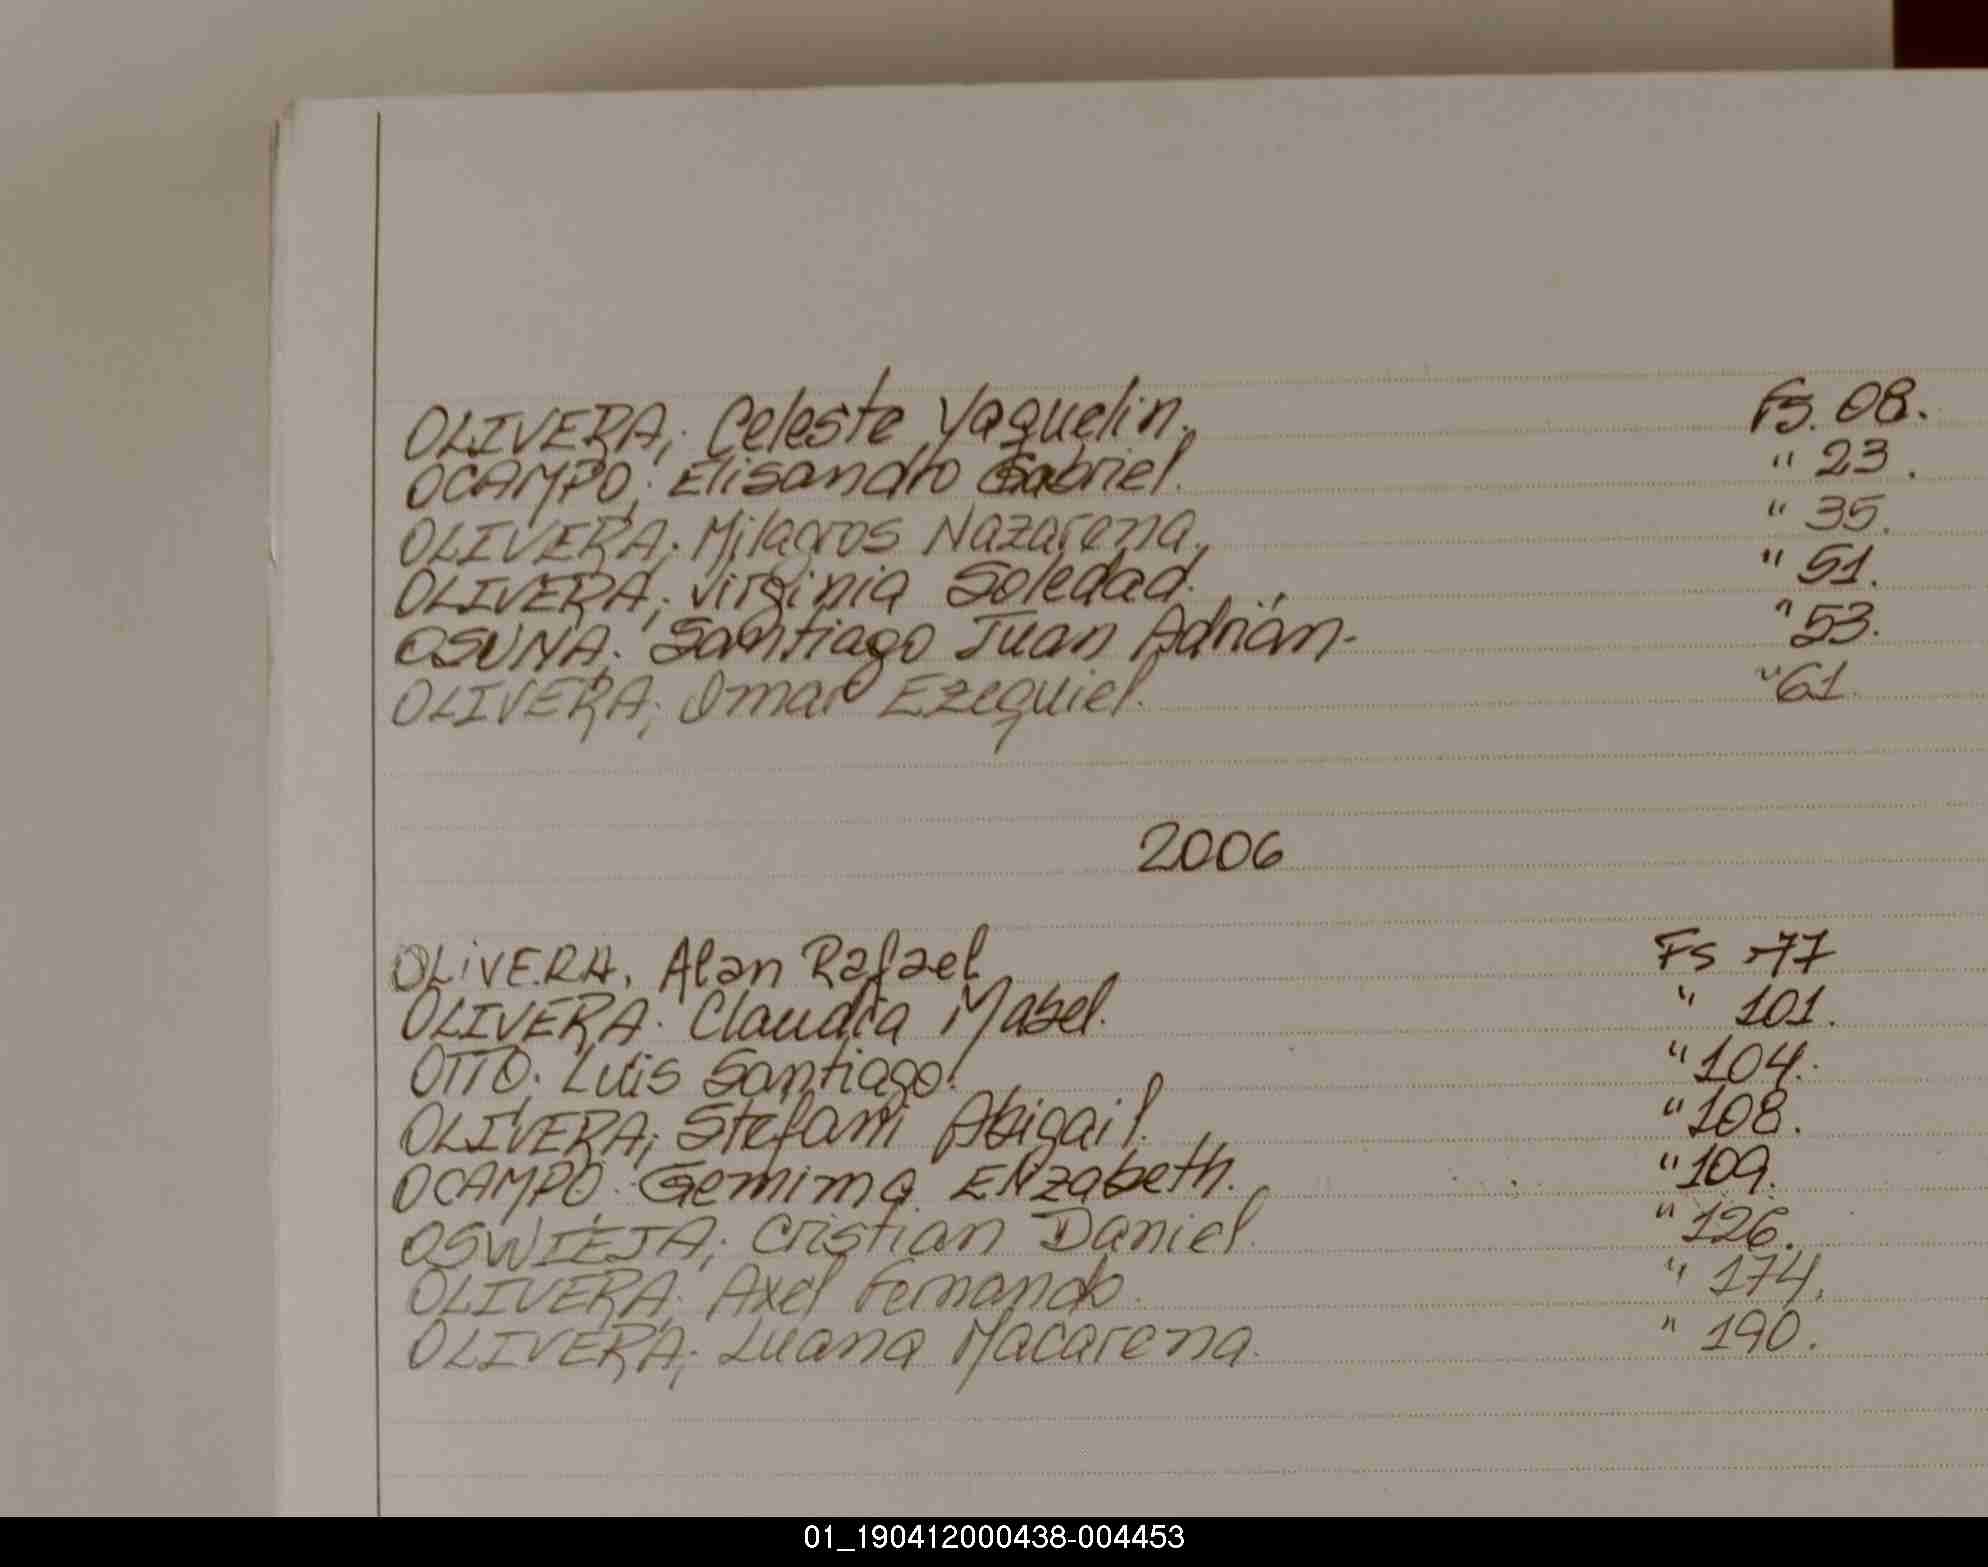 OLIVERA; Celeste Yaquelin. Fs. 08.
OCAMPO; Elisandro Gabriel. " 23.
OLIVERA; Milagros Nazarena. " 35.
OLIVERA; Virginia Soledad. " 51.
OSUNA; Santiago Juan Adrián- " 53.
OLIVERA; Omar Ezequiel. " 61.
2006
OLiVERA, Alan Rafael Fs 77
OLIVERA. Claudia Mabel. " 101.
OTTO; Luis Santiago. " 104.
OLIVERA; Stefani Abigail. " 108.
OCAMPO; Gemima Elizabeth. " 109.
OSWIEJA; Cristian Daniel. " 126.
OLIVERA; Axel Fernando. " 174.
OLIVERA; Luana Macarena. " 190.
01_190412000438-004453